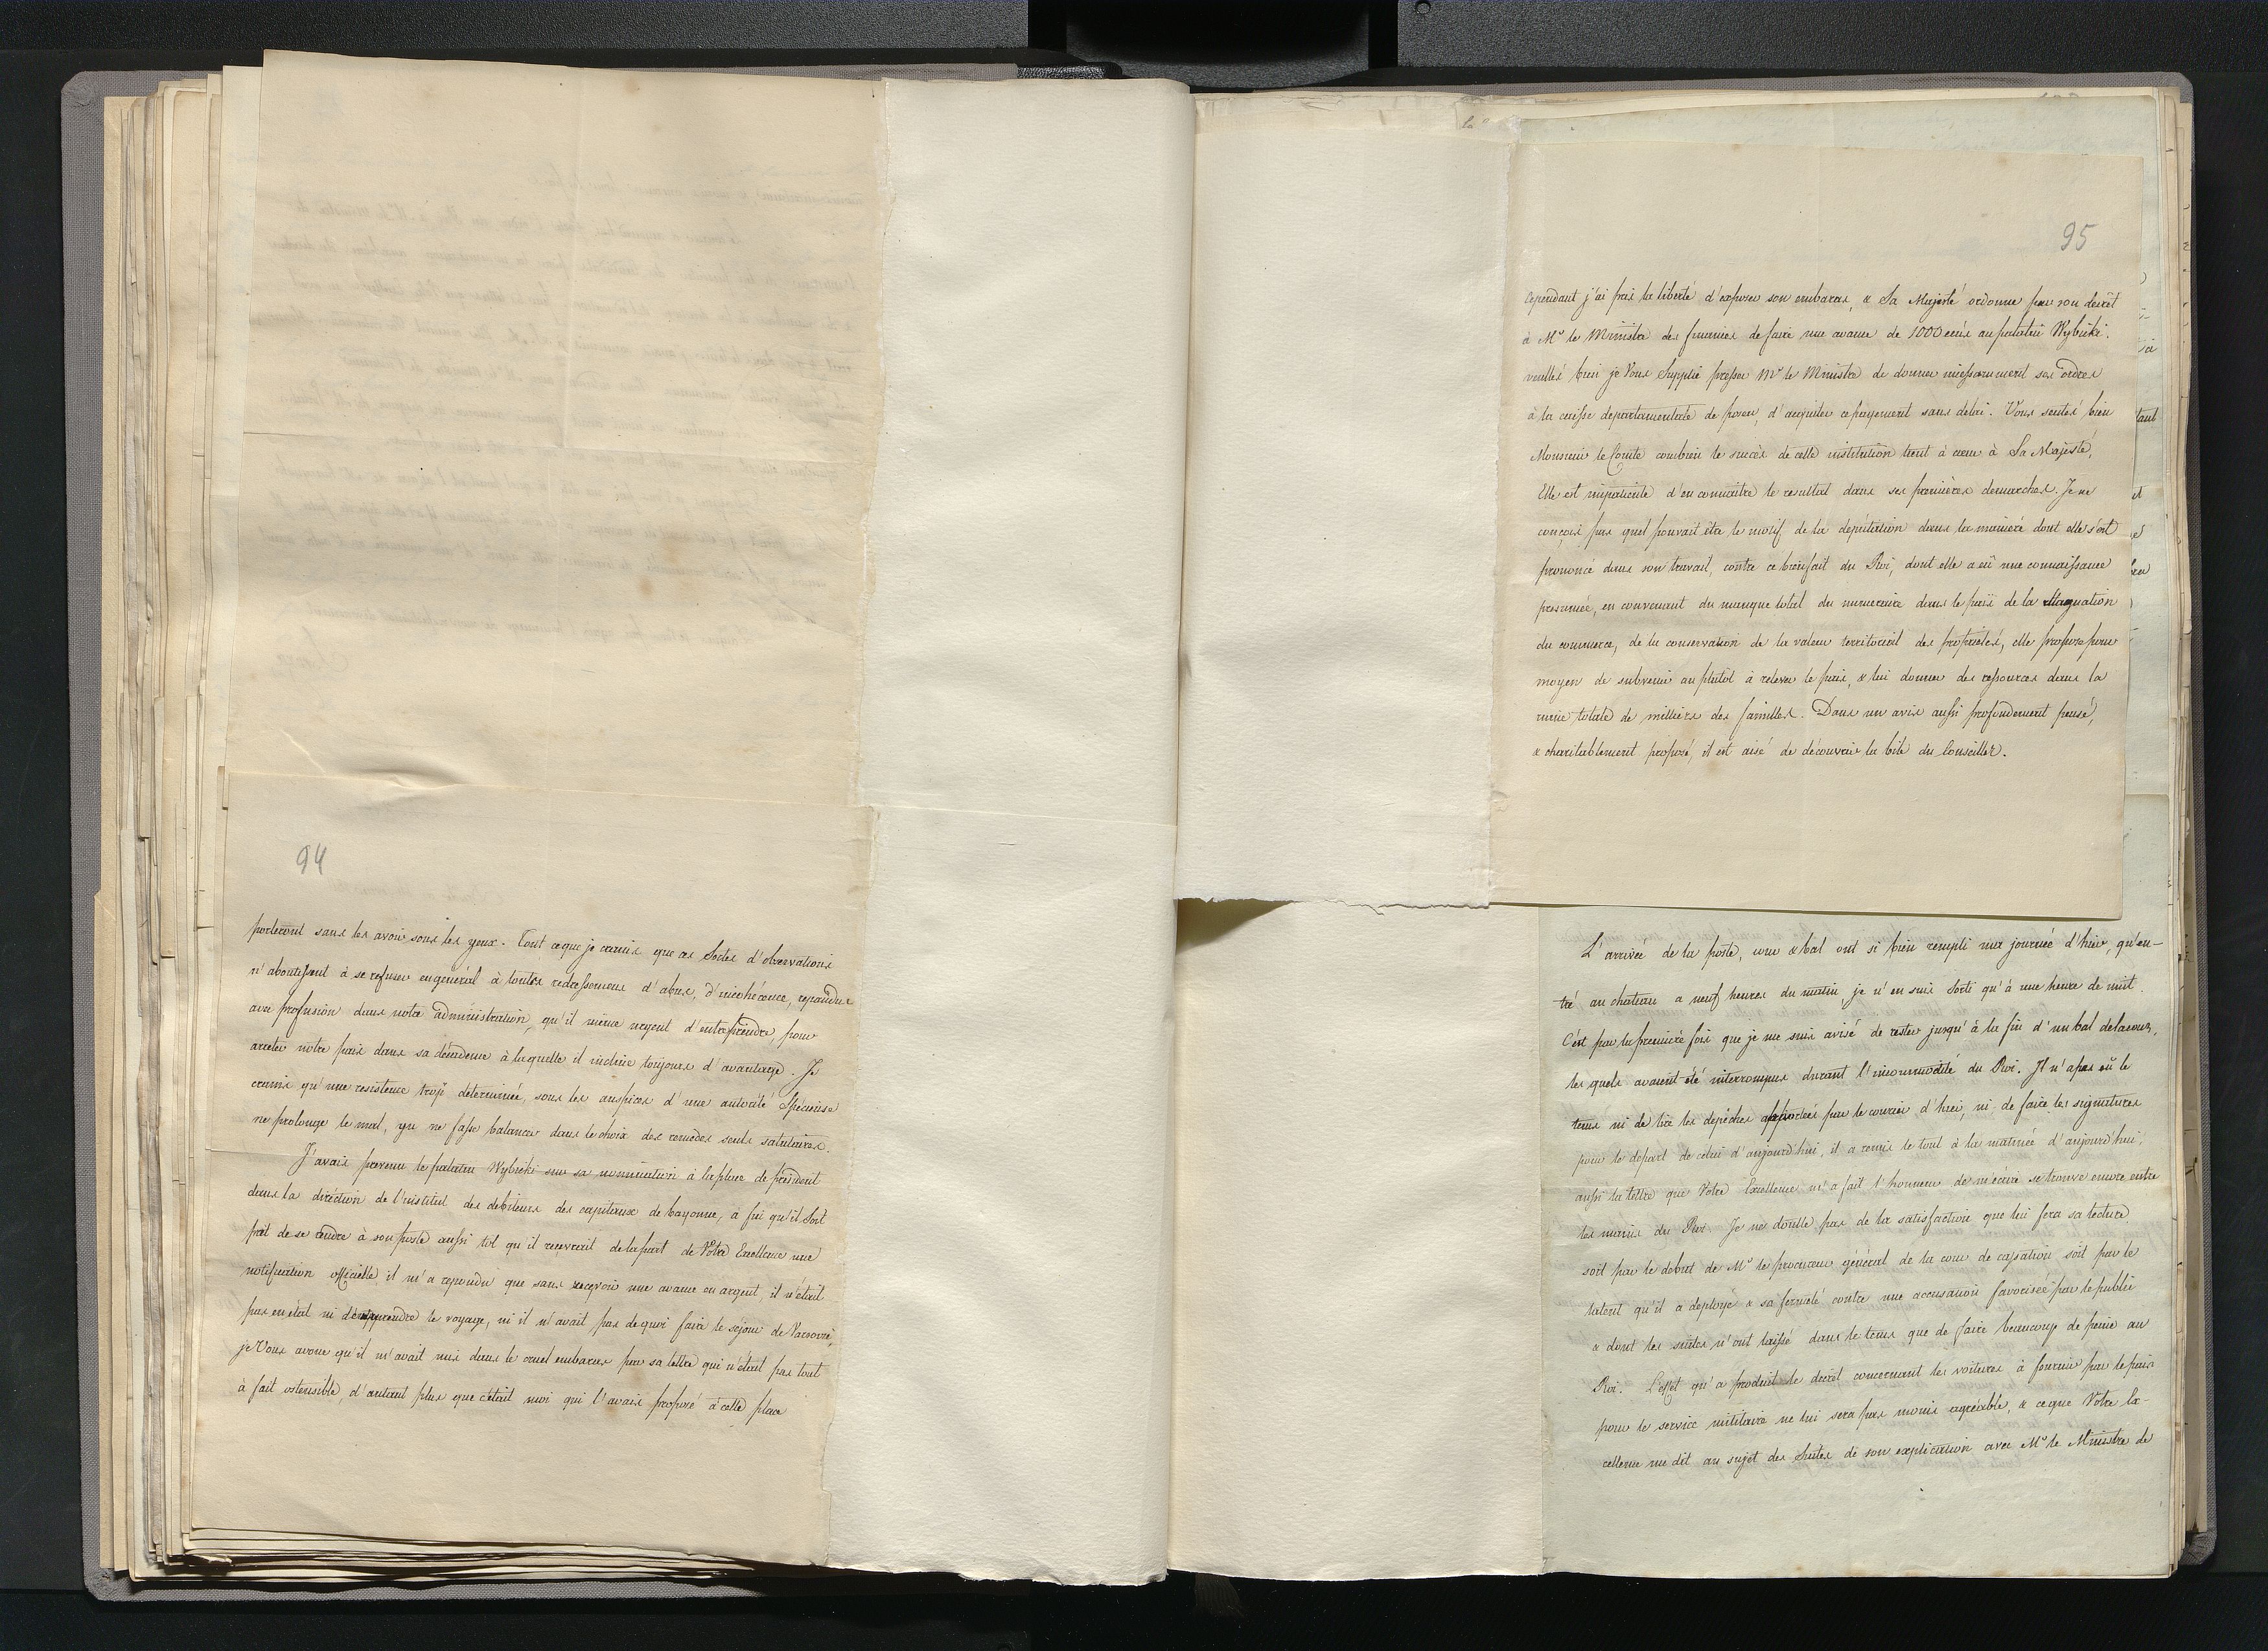 94
porteront sans les avoir sous les yeux. Tout ce que je crains que ces sortes d'observations
n'aboutissent à se refuser en général à toutes redressemens d'abus, d'incohérence, repandue
avec profusion dans notre administration, qu'il même urgent d'entreprendre, pour
arreter notre païs dans sa décadence à laquelle il incline toujours d'avantage. Je
crains qu'une resistence trop determinée, sous les auspices d'une autorité spécieuse
ne prolonge le mal, qu ne fasse balancer dans le choix des remèdes seuls salutaires.
J'avais prevenu le palatin Wybicki sur sa nomination à la place de président
dans la diréction de l'institut des debiteurs des capitaux de bayonne, à fin qu'il soit
prèt de se rendre à son poste aussi tot qu'il recevrait de la part de Votre Excellence une
notification officielle il m'a repondu que sans recevoir une avance en argent, il n'était
pas en état ni d'entreprendre le voyage, ni il n'avait pas de quoi faire le séjour de Varsovie,
je Vous avoue qu'il m'avait mis dans le cruel embaras par sa lettre qui n'était pas tout
à fait ostensible, d'autant plus que c'était moi qui l'avais proposé à cette place
95
Cependant j'ai pris la liberté d'exposer son embaras, & Sa Majesté ordonne par son decrèt
à Mr le Ministre des finances de faire une avance de 1000 ecus au palatin Wybicki.
veuillés bien je Vous supplie presser Mr le Ministre de donner incessamment ses ordres
à la caisse departamentale de posen, d'acquiter ce payement sans delai. Vous sentés bien
Monsieur le Comte combien le succès de cette institution tient à cœur à Sa Majesté,
Elle est impatiente d'en connaitre le resultat dans ses premières demarches. Je ne
conçois pas quel pouvait être le motif de la députation dans la manière dont elle s'est
prononcé dans son travail, contre ce bienfait du Roi, dont elle a eû une connaissance
presumée, en convenant du manque total du numeraire dans le païs de la stagnation
du commerce, de la conservation de la valeur territorial des propriétés, elle propose pour
moyen de subvenir au plutôt à relever le païs, & lui donner des ressources dans la
ruine totale de milliers des familles. Dans un avis aussi profondement pensé,
& charitablement proposé, il est aisé de découvrir la bile du Conseiller.
L'arrivée de la poste, cour & bal ont si bien rempli ma journée d'hier, qu'en-
tré au chateau a neuf heures du matin je n'en suis sorti qu'à une heure de nuit.
C'est par la première fois que je me suis avisé de rester jusqu'à la fin d'un bal de la cour,
les quels avaient été interrompus durant l'incommodité du Roi. Il n'a pas eû le
tems ni de lire les depêches apportées par le courier d'hier, ni de faire les signatures
pour le depart de celui d'aujourd'hui, il a remis le tout à la matinée d'aujourd'hui,
aussi la lettre que Votre Excellence m'a fait l'honneur de m'écrire se trouve encore entre
les mains du Roi. Je ne doutte pas de la satisfaction que lui fera sa lecture
soit par le debut de Mr le procureur général de la cour de cassation soit par le
talent qu'il a deployé & sa fermeté contre une accusation favorisée par le public
& dont les suites n'ont laissé dans le tems que de faire beaucoup de peine au
Roi. L'effet qu'a produit le decrèt concernant les voitures à fournir par le païs
pour le service militaire ne lui sera pas moins agréable, & ce que Votre Ex-
cellence me dit au sujet des suites de son explication avec Mr le Ministre de